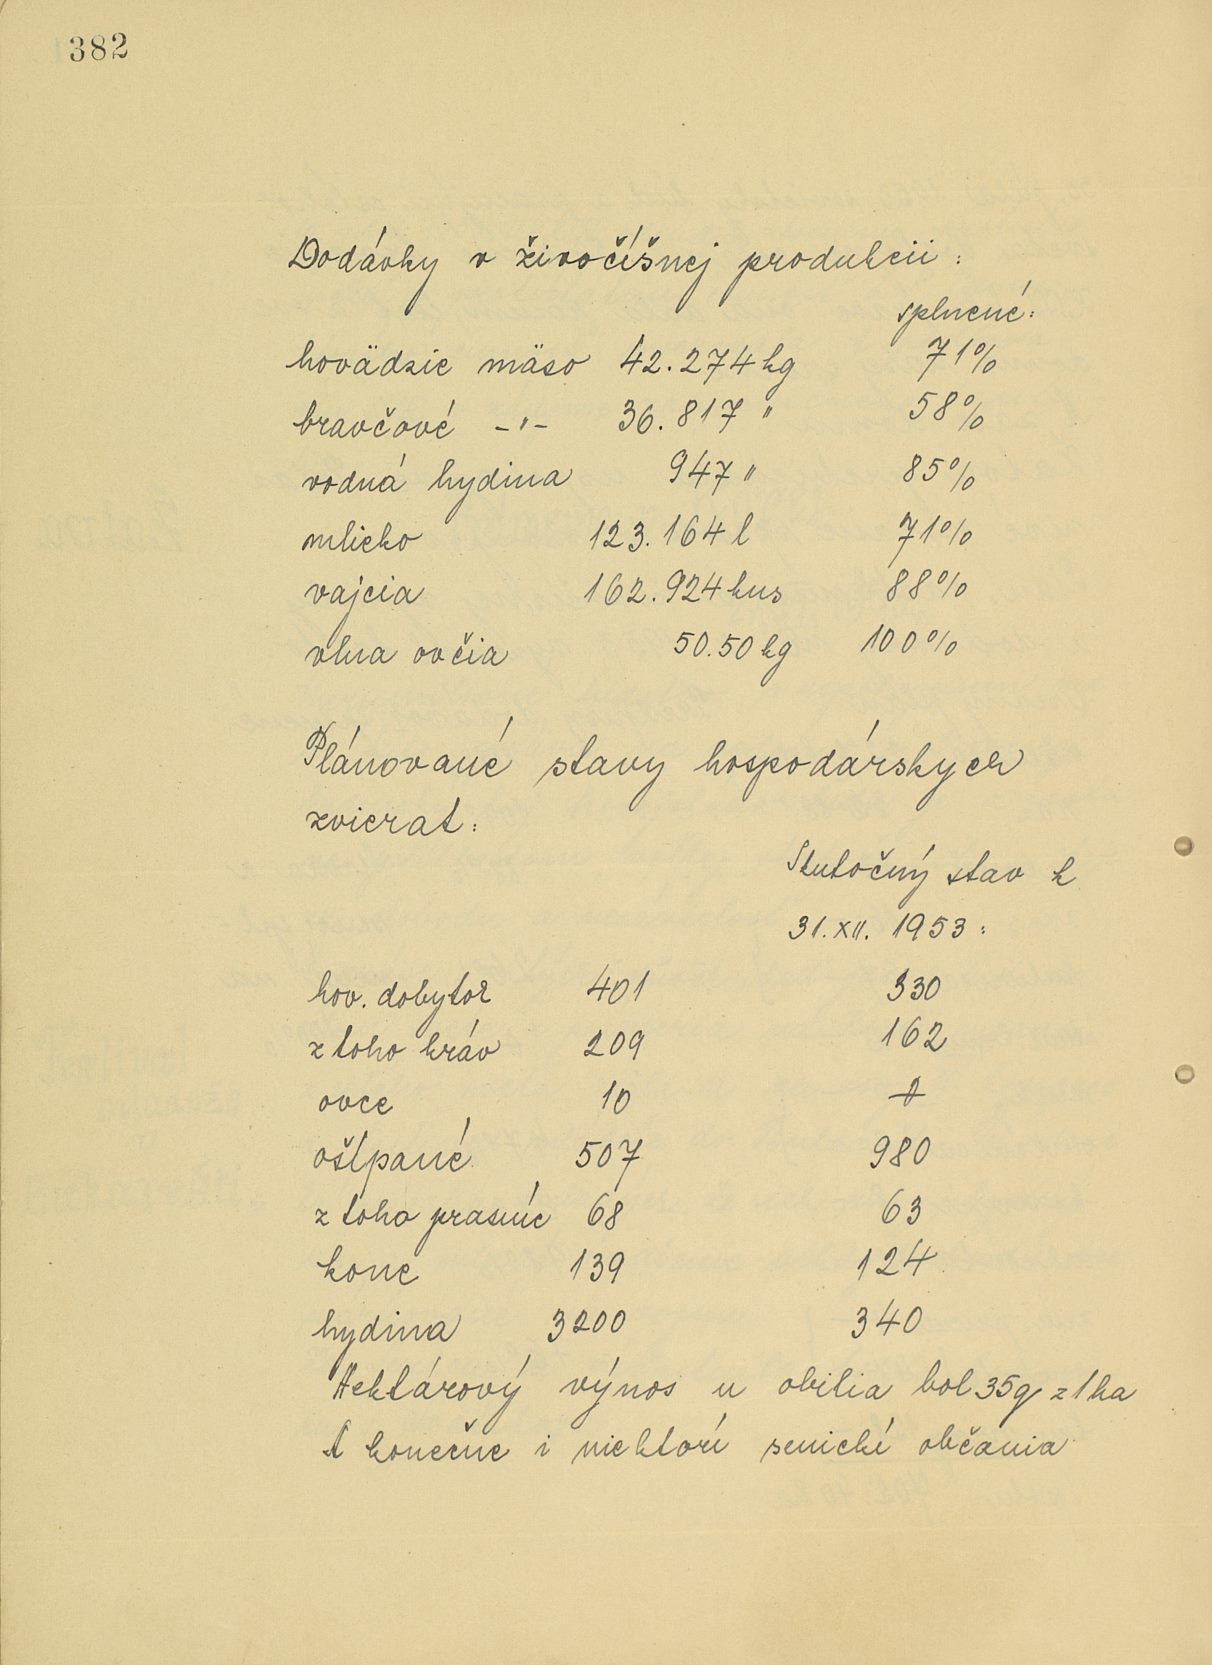 382
Dodávky v živočíšnej produkcii :
splnené:
hovädzie mäso 42.274 kg 71%
bravčové -"- 36.817 " 58%
vodná hydina 947 " 85%
mlieko 123.164 l 71%
vajcia 162.924 kus 88%
vlna ovčia 50.50 kg 100%
Plánované stavy hospodárskych
zvierat:
Skutočný stav k
31.XII. 1953:
hov. dobytok 401 330
z toho kráv 209 162
ovce 10
ošípané 507 980
z toho prasníc 68 63
kone 139 124
hydina 3200 340
Hektárový výnos u obilia bol 35q z 1 ha
A konečne i niektorí senickí občania